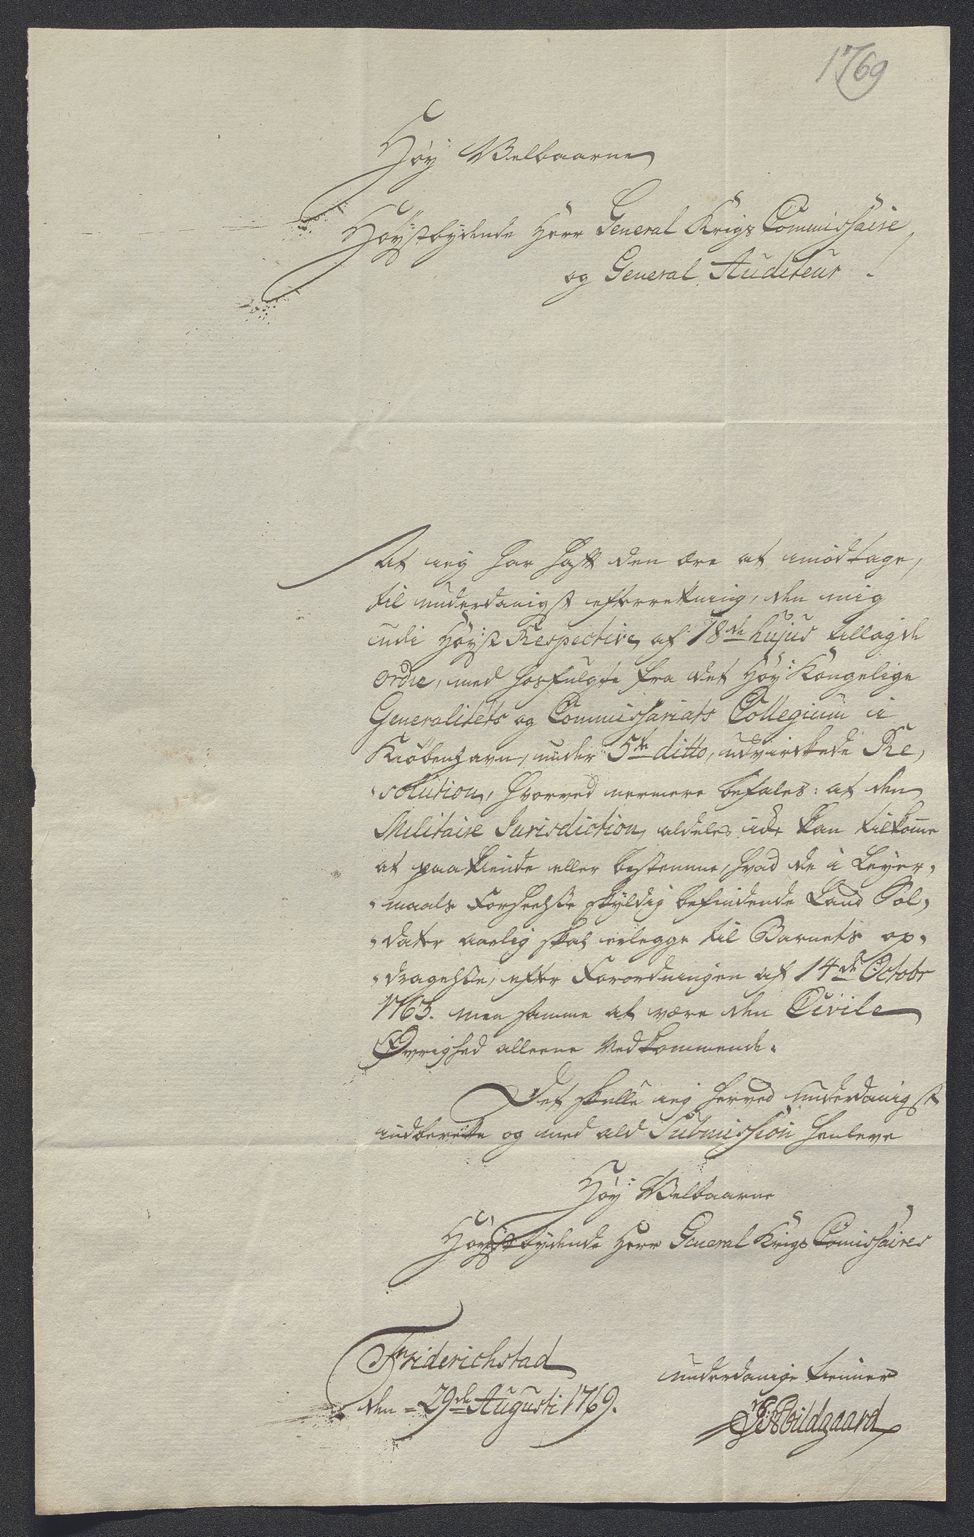 1769
Høy Velbaarne
Høystbydende Herr General Krigs Commissaire,
og General Auditeur !
At ieg har haft den ære at imodtage,
til underdanigst efterretning, den mig
udi Høyst Respective af 18de hujus tillagde
ordre, med hosfulgte fra det Høy Kongelige
Generalitets og Commissariats Collegium i
Kiøbenhavn, under 5te ditto, udvirkede Re,
solution, hvorved nermere befales: at den
Militaire Jurisdiction, aldeles icke kan tilkomme
at paakiende eller bestemme, hvad de i Leyer,
maals Forseelse skyldig befindende Land Sol,
dater aarlig skal erlegge til Barnets op,
dragelse, efter Forordningen af 14de Octobr
1763. men samme at være den Civile
Øvrighed alleene Vedkommende.
Det skulle ieg herved underdanigst
indberette og med ald Submission henleve
Høy Velbaarne
Høystbydende Herr General Krigs Comissaires
Friderichstad
den 29de Augusti 1769.
underdanige tienner
Abildgaard